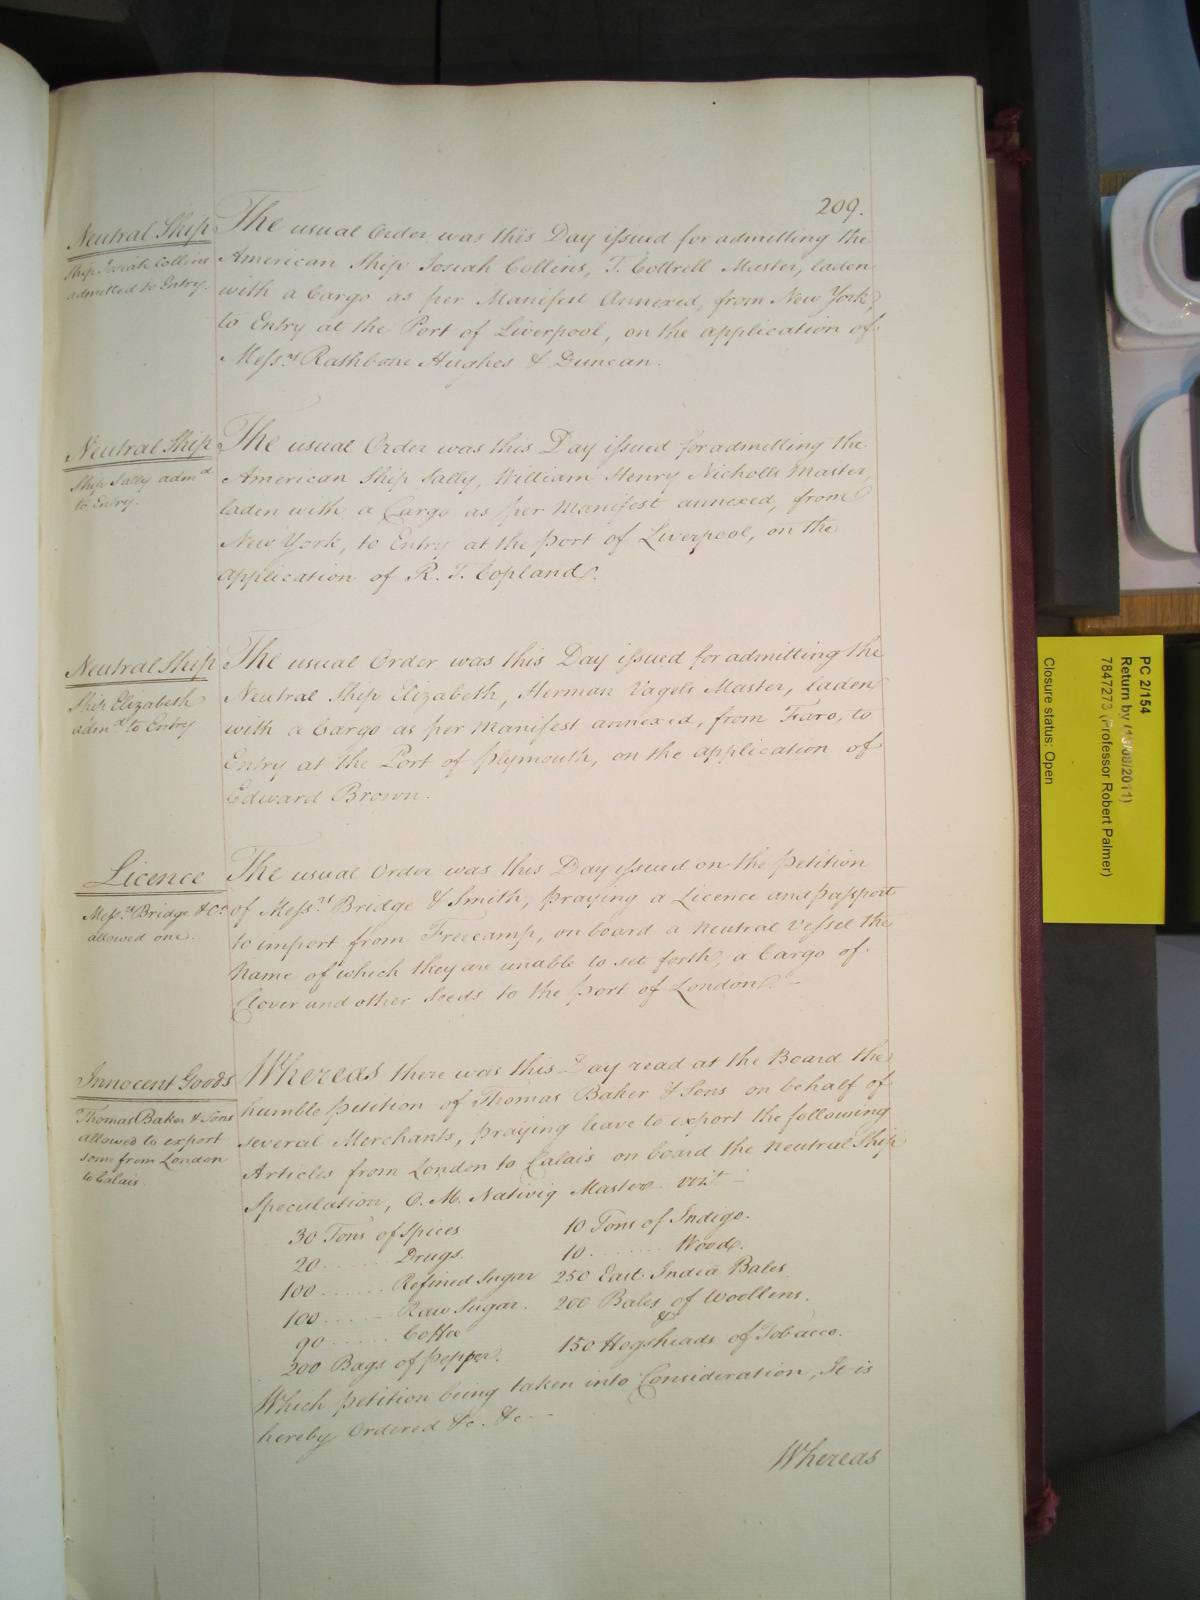 209.
Neutral Ship
Ship Josiah Collins
admitted to Entry.
The usual Order was this Day issued for admitting the
American Ship Josiah Collins, T. Cottrell Master, laden
with a Cargo as per Manifest Annexed, from New York,
to Entry at the Port of Liverpool, on the application of
Messrs Rathbone Hughes & Duncan.
Neutral Ship
Ship Sally admd
to Entry.
The usual Order was this Day issued for admitting the
American Ship Sally, William Henry Nicholls Master,
laden with a Cargo as per Manifest annexed, from
New York, to Entry at the Port of Liverpool, on the
application of R. T. Copland.
Neutral Ship
Ship Elizabeth
admd to Entry
The usual Order was this Day issued for admitting the
Neutral Ship Elizabeth, Herman Vagels Master, laden
with a Cargo as per Manifest annexed, from Faro, to
Entry at the Port of Plymouth, on the application of
Edward Brown
Licence
Messrs Bridge & Co
allowed one.
The usual Order was this Day issued on the Petition
of Messrs Bridge & Smith, praying a Licence and passport
to import from Treecamp, on board a Neutral Vessel the
Name of which they are unable to set forth, a Cargo of
Clover and other Seeds to the Port of London.
Innocent Goods
Thomas Baker & Sons
allowed to export
some from London
to Calais.
Whereas there was this Day read at the Board the
humble Petition of Thomas Baker & Sons on behalf of
several Merchants, praying leave to export the following
Articles from London to Calais on board the neutral Ship
Speculation, O. M. Nativig Master vizt.
30 Tons of Spices
20 ...... Drugs.
100 ...... Refined Sugar
100 ...... Raw Sugar.
90 ...... Coffee
200 Bags of Pepper.
10 Tons of Indigo.
10 ...... Wood.
250 East India Bales
200 Bales of Woollens.
&
150 Hogsheads of Tobacco.
Which Petition being taken into Consideration, It is
hereby Ordered &c. &c.
Whereas
PC 2/154
Return by (13/08/2011)
7847273 (Professor Robert Palmer)
Closure status: Open